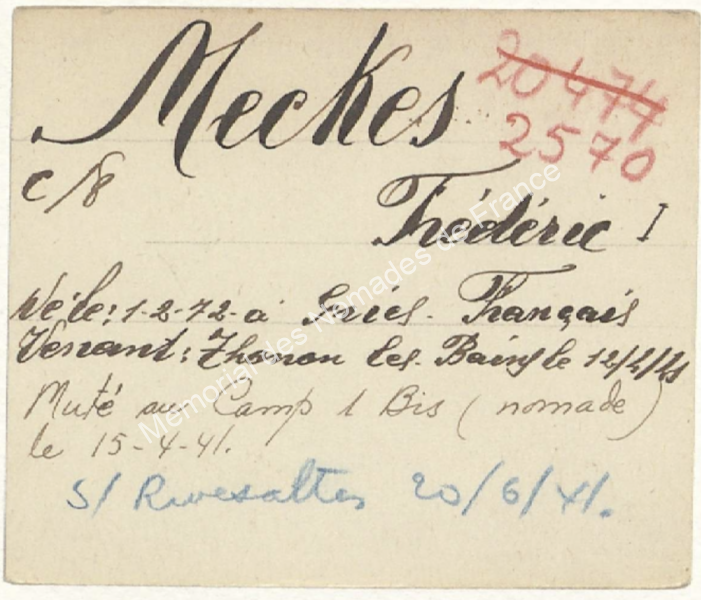 Meckes
20474
2570
C/8
Frédéric I
Né le: 1-2-72 à Français
Venant: Thonon les Bains le 12/4/41
Muté au Camp 1 Bis (nomade)
le 15-4-41.
S/ Rivesaltes 20/6/41.
Memorial des Nomades de France